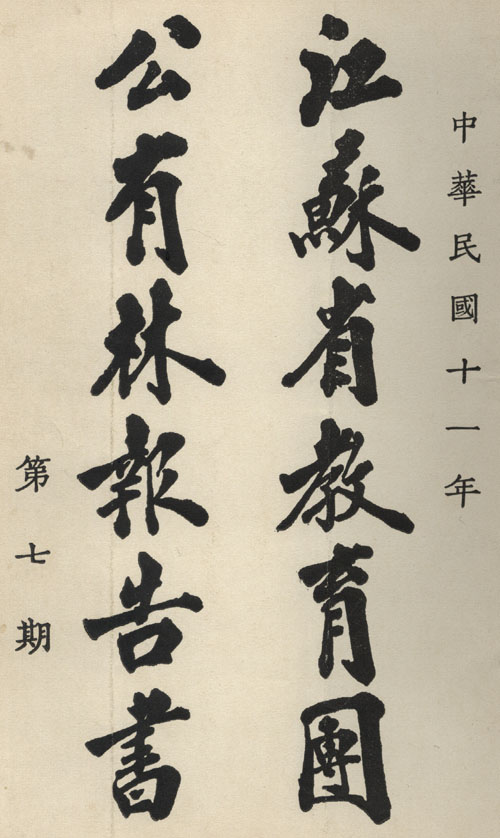 中華民國十一年
江蘇省教育團
公有林報告書
第七期